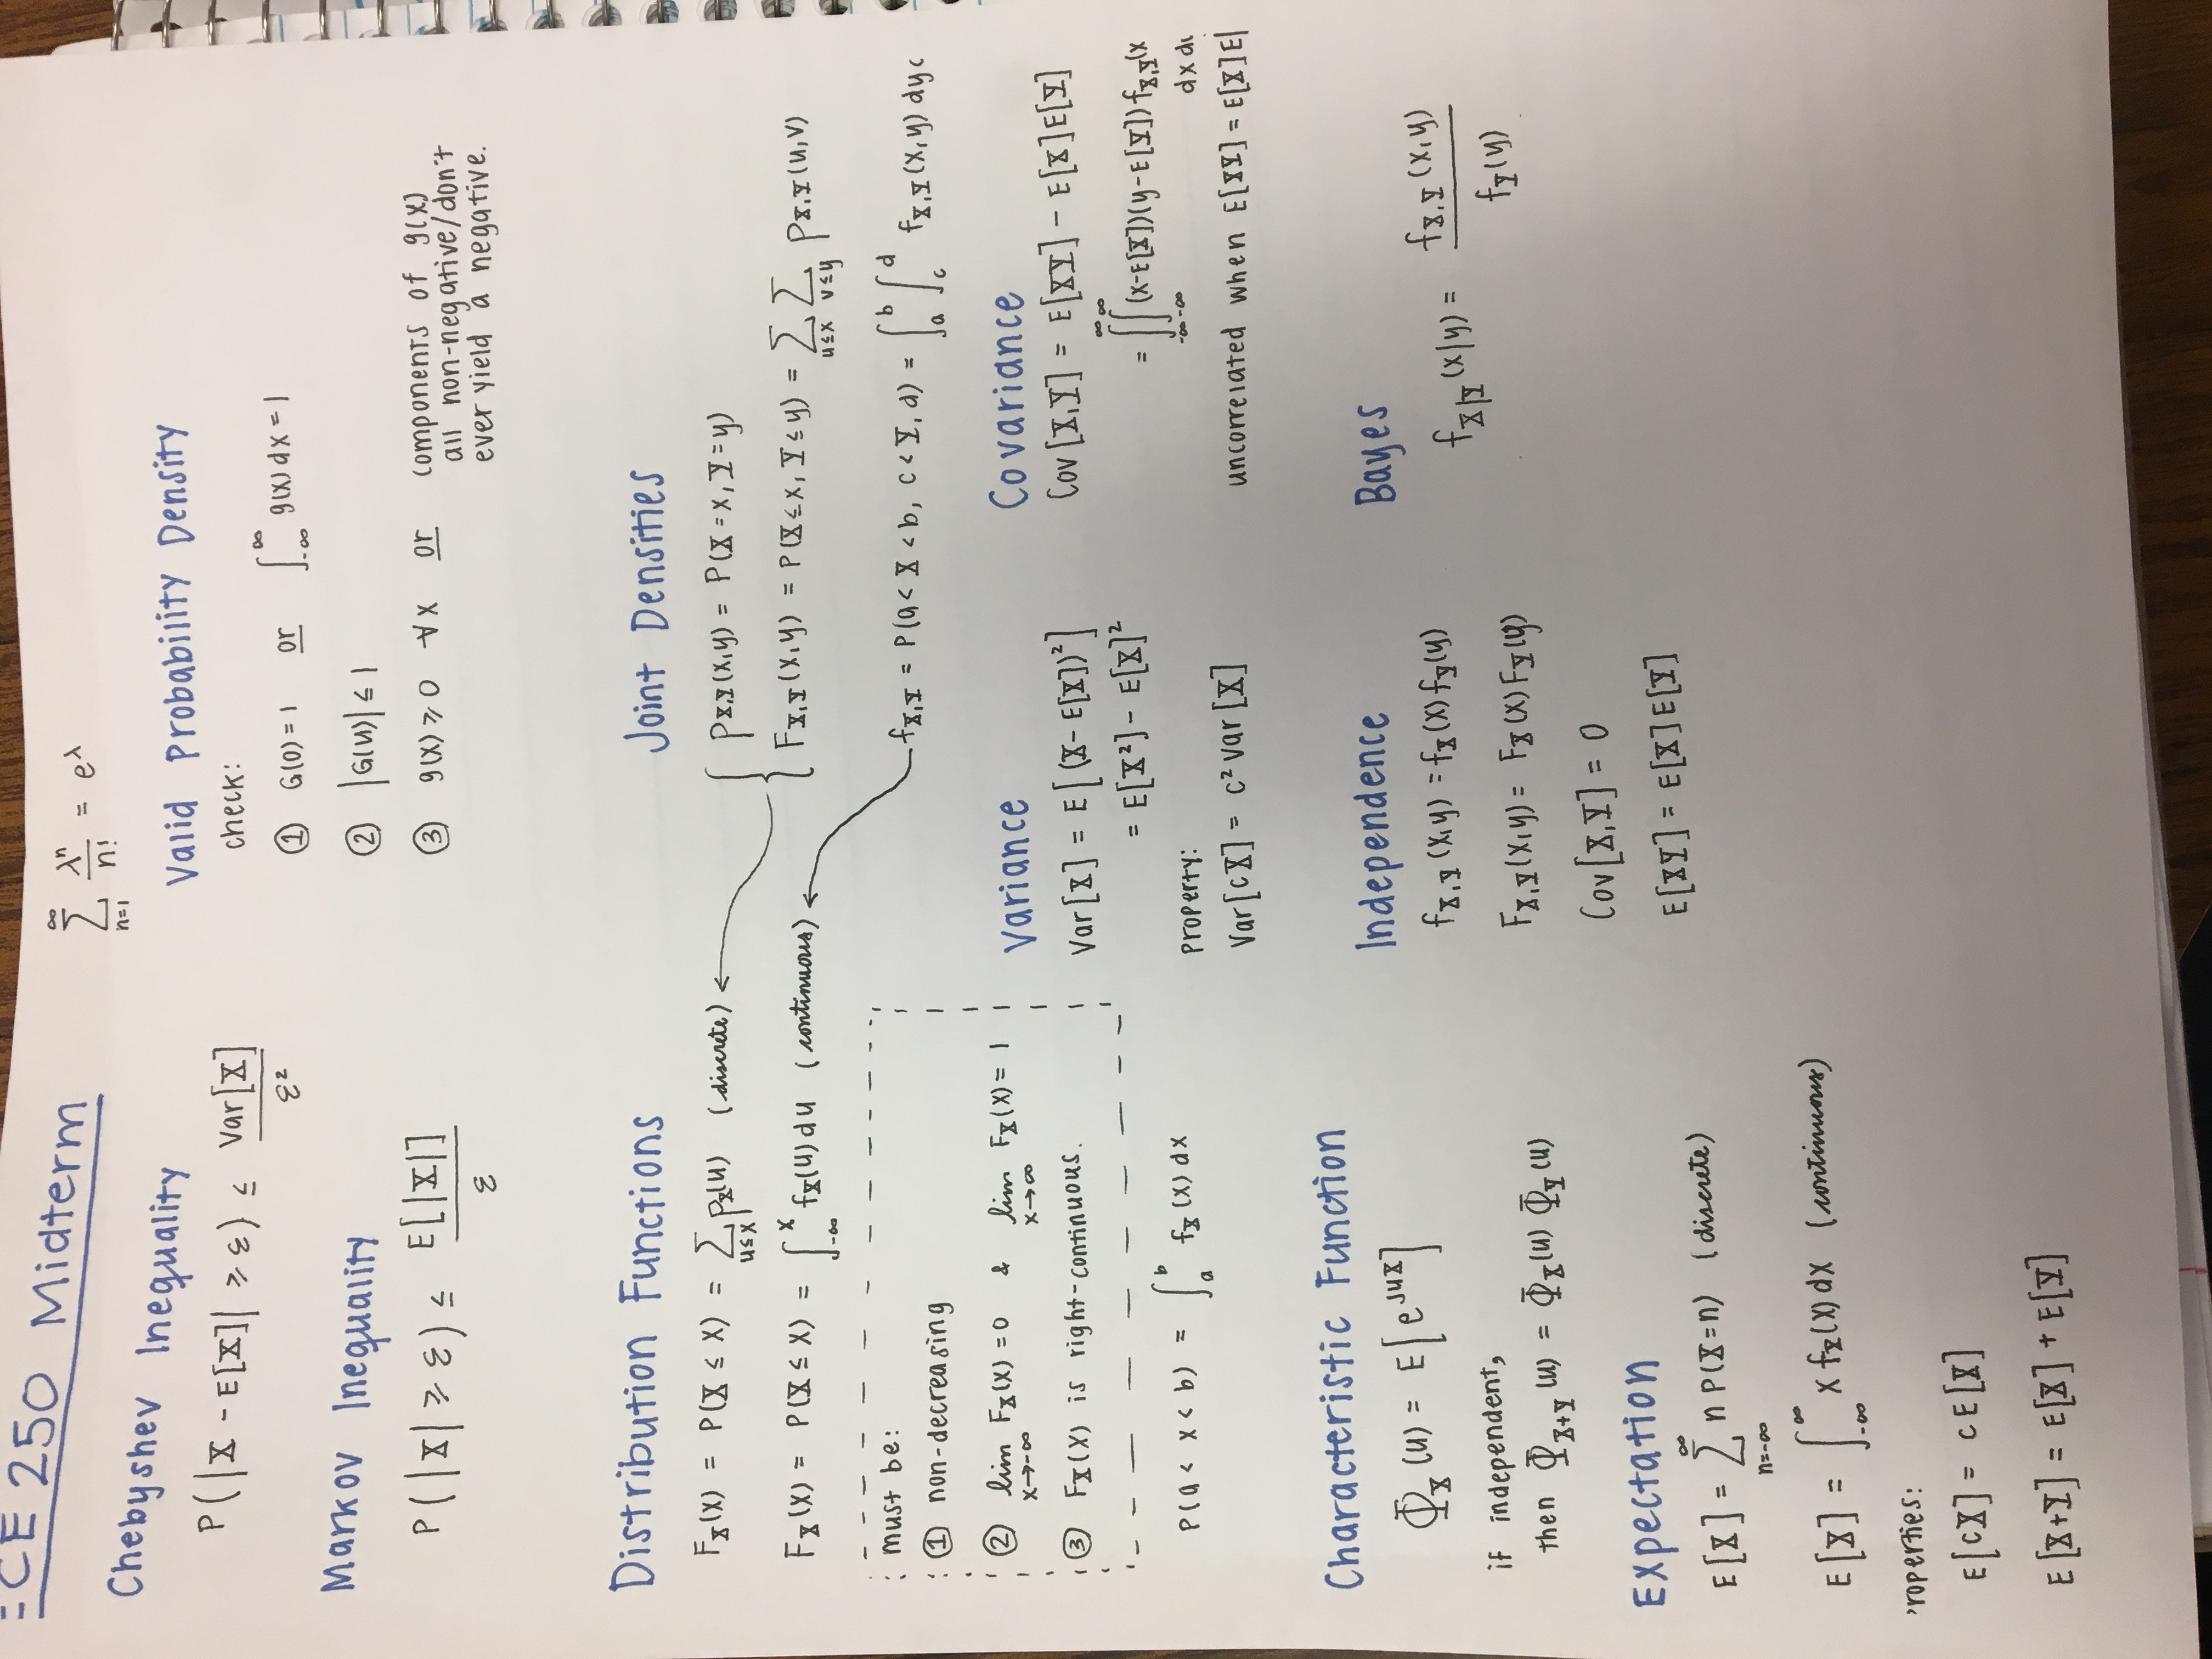 ECE 250 Midterm
∞
∑ λⁿ/n! = e^λ
n=1
Chebyshev Inequality
P(|X - E[X]| ≥ ε) ≤ Var[X]/ε²
Markov Inequality
P(|X| ≥ ε) ≤ E[|X|]/ε
Valid Probability Density
check:
① G(0) = 1 or ∫_{-∞}^{∞} g(x) dx = 1
② |G(u)| ≤ 1
③ g(x) ≥ 0 ∀x or components of g(x)
all non-negative/don't
ever yield a negative.
Distribution Functions
F_X(x) = P(X ≤ x) = ∑_{u≤x} p_X(u) (discrete)
F_X(x) = P(X ≤ x) = ∫_{-∞}^{x} f_X(u) du (continuous)
must be:
① non-decreasing
② lim_{x→-∞} F_X(x) = 0 & lim_{x→∞} F_X(x) = 1
③ F_X(x) is right-continuous.
P(a < x < b) = ∫_a^b f_X(x) dx
Joint Densities
p_{X,Y}(x,y) = P(X = x, Y = y)
F_{X,Y}(x,y) = P(X ≤ x, Y ≤ y) = ∑_{u≤x} ∑_{v≤y} p_{X,Y}(u,v)
f_{X,Y} = P(a < X < b, c < Y, d) = ∫_a^b ∫_c^d f_{X,Y}(x,y) dy
Variance
Var[X] = E[(X - E[X])²]
= E[X²] - E[X]²
property:
Var[cX] = c² Var[X]
Covariance
Cov[X,Y] = E[XY] - E[X]E[Y]
= ∫_{-∞}^{∞} ∫_{-∞}^{∞} (x-E[X])(y-E[Y]) f_{X,Y}(x
dx d
uncorrelated when E[XY] = E[X]E[
Characteristic Function
Φ_X(u) = E[e^{juX}]
if independent,
then Φ_{X+Y}(u) = Φ_X(u) Φ_Y(u)
Independence
f_{X,Y}(x,y) = f_X(x) f_Y(y)
F_{X,Y}(x,y) = F_X(x) F_Y(y)
Cov[X,Y] = 0
E[XY] = E[X]E[Y]
Bayes
f_{X|Y}(x|y) = f_{X,Y}(x,y)/f_Y(y)
Expectation
E[X] = ∑_{n=-∞}^{∞} n P(X=n) (discrete)
E[X] = ∫_{-∞}^{∞} x f_X(x) dx (continuous)
roperties:
E[cX] = c E[X]
E[X+Y] = E[X] + E[Y]